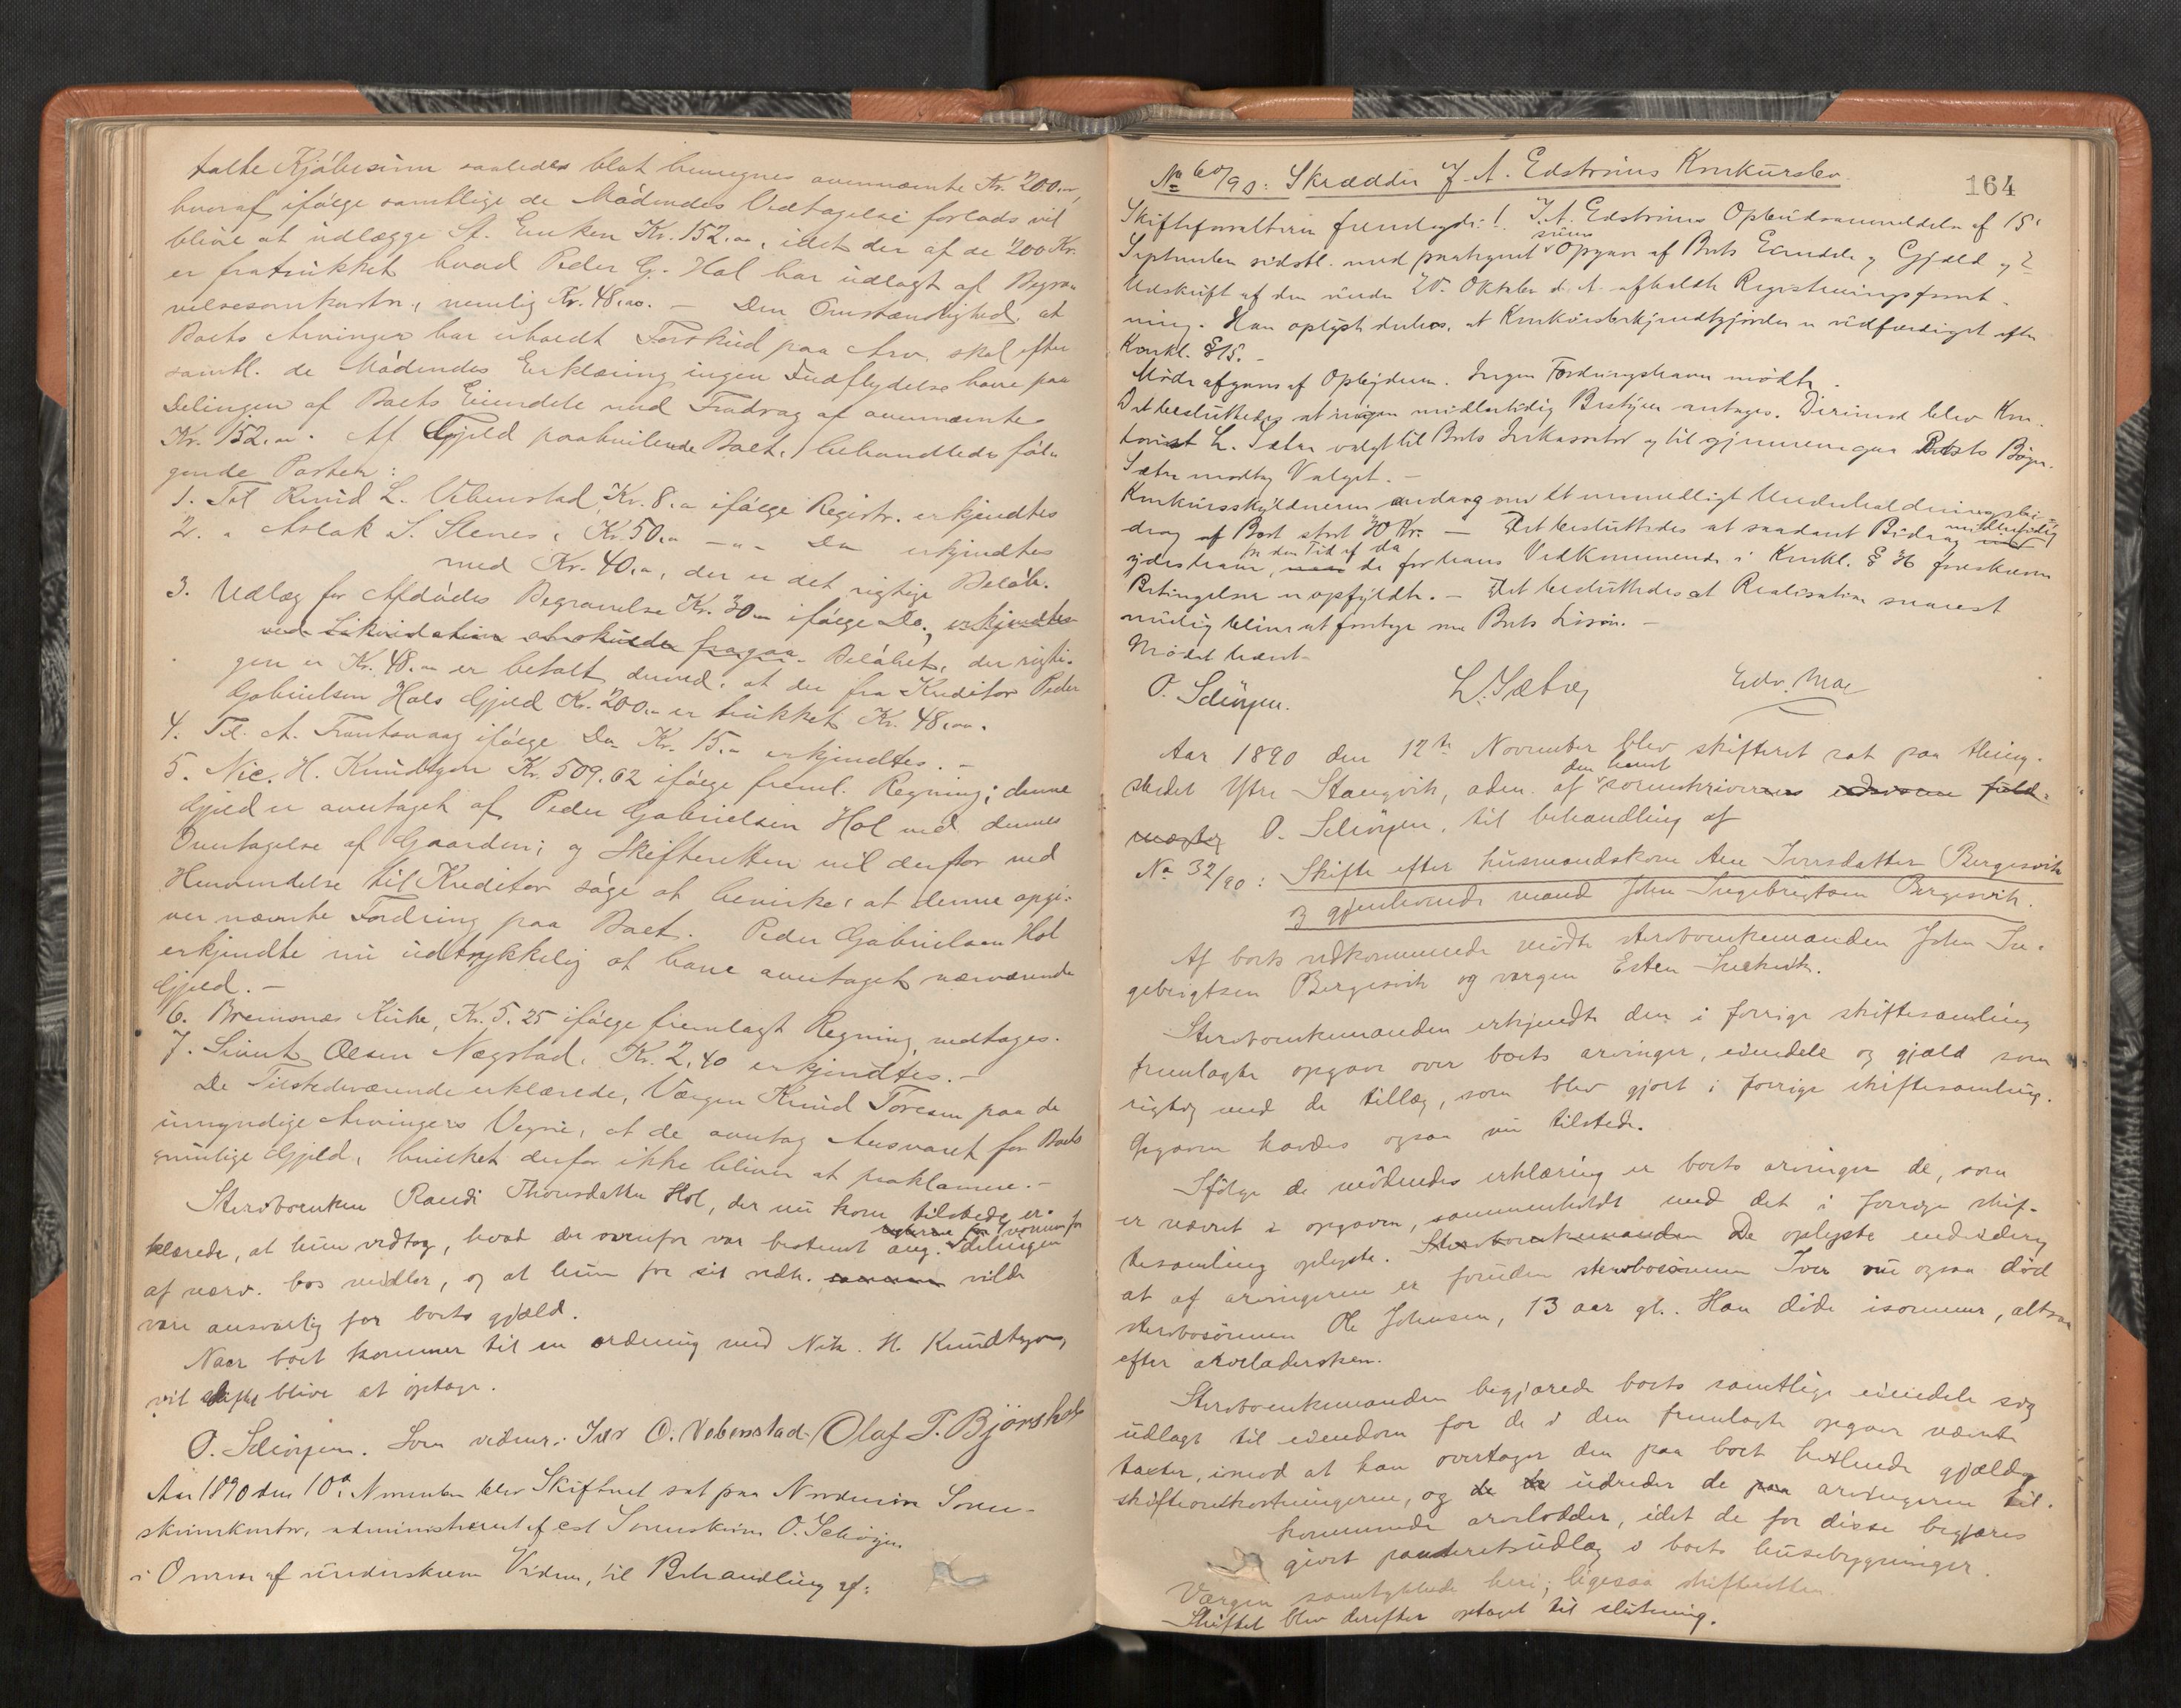 talte Kjøbesum saaledes blot beregnes ovennævnte Kr. 200.00,
hvoraf ifølge samtlige de Mødendes Vedtagelse forlods vil
blive at udlægge St. Enken Kr. 152.00, idet der af de 200 Kr.
er fratrukket hvad Peder G. Hol har udlagt af Begra-
velsesomkostn., nemlig Kr. 48.00. — Den Omstændighed, at
Boets Arvinger har erholdt Forskud paa Arv, skal efter
samtl. de Mødendes Erklæring ingen Indflydelse have paa
Delingen af Boets Eiendele med Fradrag af ovennævnte
Kr. 152.00. Af Gjæld paahvilende Boet, behandledes føl-
gende Poster:
1. Til Knud L. Vebenstad Kr. 8.00 ifølge Registr. erkjendtes
2. " Aslak S. Stenes, Kr. 50.00 — " — Do erkjendtes
med Kr. 40.00, der er det rigtige Beløb.
3. Udlæg for Afdødes Begravelse Kr. 30.00 ifølge Do., erkjendtes
ved Likvidation fragaa. Beløbet, der rigti-
gen er Kr. 48.00 er betalt derved, at der fra Kreditor Peder
Gabrielsen Hols Gjæld Kr. 200.00 er trukket Kr. 48.00.
4. Til A. Frantsvaag ifølge Do Kr. 15.00 erkjendtes. —
5. Nic. H. Knudtzon Kr. 509.62 ifølge freml. Regning; denne
Gjæld er overtaget af Peder Gabrielsen Hol ved dennes
Overtagelse af Gaarden; og Skifteretten vil derfor ved
Henvendelse til Kreditor søge at bevirke, at denne opgi-
ver nævnte Fordring paa Boet. Peder Gabrielsen Hol
erkjendte nu udtrykkelig at have overtaget nærværende
Gjæld. —
6. Bremsnæs Kirke, Kr. 5.25 ifølge fremlagt Regning vedtages.
7. Sivert Olsen Nægstad, Kr. 2.40 erkjendtes. —
De Tilstedeværende erklærede, Værgen Knud Toresen paa de
umyndige Arvingers Vegne, at de overtog Ansvaret for Boets
mulige Gjæld, hvilket derfor ikke bliver at proklamere. —
Stervboenken Randi Thorsdatter Hol, der nu kom tilstede, er-
klærede, at hun vedtog, hvad der ovenfor var bestemt ang. delingen
af nærv. bos midler, og at hun for sit vedk. vilde
være ansvarlig for boets gjæld.
Naar boet kommer til en ordning med Nik. H. Knudtzon,
vil skiftet blive at optage.
O. Schiørgen. Som vidner: Iver O. Vebenstad Olaf P. Bjørshol
Aar 1890 den 10de November blev Skifteret sat paa Nordmøre Soren-
skriverkontor, administreret af cst Sorenskriver O. Schiørgen
i Overvær af underskrevne Vidner, til Behandling af:
164
No 60/90: Skrædder J. A. Edstrøms Konkursbo.
Skifteforvalteren fremlagde: 1. J. A. Edstrøms Opbudsanmeldelse af 15de
September sidstl. med paategnet Opgave af Boets Eiendele og Gjæld og 2
Udskrift af den under 20de Oktober d. A. afholdte Registreringsforret-
ning. Han oplyste derhos, at Konkursbekjendtgjørelse er udfærdiget efter
Konkl. § 15. —
Møde afgaves af Opbyderen. Ingen Fordringshaver mødte.
Det besluttedes at ingen midlertidig Bestyrer antages. Derimod blev Kon-
torist L. Sæter valgt til Boets Inkassator og til gjennemgaa Boets Bøger.
Sæter modtog Valget. —
Konkursskyldneren androg om et maanedligt Underholdnings-
drag af Boet stort 70 Kr. — Det besluttedes at saadant Bidrag midlertidig
ydes ham, fra den Tid af da de for hans Vedkommende i Konkl. § 36 foreskrevne
Betingelser er opfyldte. — Det besluttedes at Realisation snarest
mulig bliver at foretage Boets Løsøre. —
Mødet hævet
O. Schiørgen. L. Sæter Edv. Moe
Aar 1890 den 12te November blev skifteret sat paa thing-
stedet Ytre Stangvik, adm. af den const sorenskriver edsvorne fuld-
mægtig O. Schiørgen, til behandling af
No 32/90: Skifte efter husmandskone Ane Iversdatter Bergesvik
og gjenlevende mand John Ingebrigtsen Bergesvik.
Af boets vedkommende mødte stervboenkemanden John In-
gebrigtsen Bergesvik og vergen Esten
Stervboenkemanden erkjendte den i forrige skiftesamling
fremlagte opgave over boets arvinger, eiendele og gjæld som
rigtig med de tillæg, som blev gjort i forrige skiftesamling.
Opgaven havdes ogsaa nu tilstede.
Ifølge de mødendes erklæring er boets arvinger de, som
er nævnt i opgaven, sammenholdt med det i forrige skif-
tesamling oplyste. Stervboenkemanden De oplyste endvidere
at af arvingerne er foruden stervbosønnen Iver nu ogsaa død
stervbosønnen Ole Johnsen, 13 aar gl. Han døde isommer, altsaa
efter arveladersken.
Stervboenkemanden begjærede boets samtlige eiendele sig
udlagt til eiendom for de i den fremlagte opgave nævnte
taxter, imod at han overtager den paa boet hvilende gjæld og
skifteomkostningerne, og udreder de arvingerne til-
kommende arvelodder, idet de for disse begjæres
givet panteretsudlæg i boets husebygninger.
Værgen samtykkede heri; ligesaa skifteretten.
Skiftet blev derefter optaget til slutning.